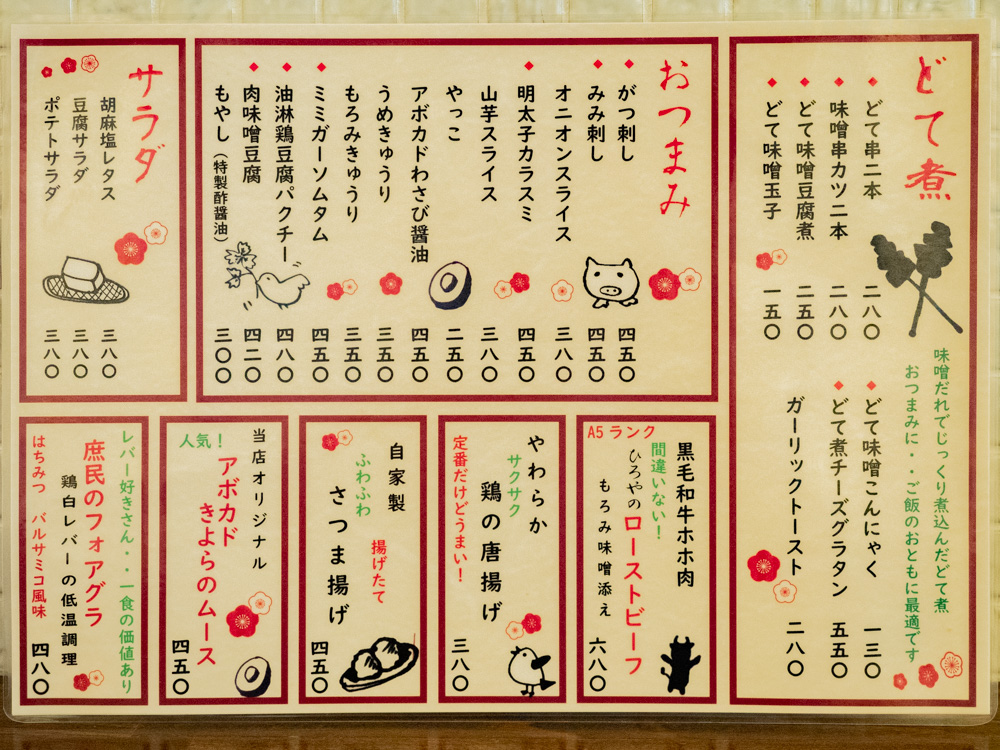 どて煮
味噌だれでじっくり煮込んだどて煮
おつまみに・・ご飯のおともに最適です
どて串二本 二八〇
味噌串カツ二本 二八〇
どて味噌豆腐煮 二五〇
どて味噌玉子 一五〇
どて味噌こんにゃく 一三〇
どて煮チーズグラタン 五五〇
ガーリックトースト 二八〇
おつまみ
がつ刺し 四五〇
みみ刺し 四五〇
オニオンスライス 三八〇
明太子カラスミ 四五〇
山芋スライス 三八〇
やっこ 二五〇
アボカドわさび醤油 四五〇
うめきゅうり 三五〇
もろみきゅうり 三五〇
ミミガーソムタム 四五〇
油淋鶏豆腐パクチー 四八〇
肉味噌豆腐 四二〇
もやし(特製酢醤油) 三〇〇
サラダ
胡麻塩レタス 三八〇
豆腐サラダ 三八〇
ポテトサラダ 三八〇
A5ランク
黒毛和牛ホホ肉
間違いない!
ひろやのローストビーフ
もろみ味噌添え 六八〇
やわらか
サクサク
鶏の唐揚げ
定番だけどうまい!
三八〇
自家製
ふわふわ
揚げたて
さつま揚げ
四五〇
当店オリジナル
人気!
アボカド
きよらのムース
四五〇
レバー好きさん・・一食の価値あり
庶民のフォアグラ
鶏白レバーの低温調理
はちみつ バルサミコ風味
四八〇